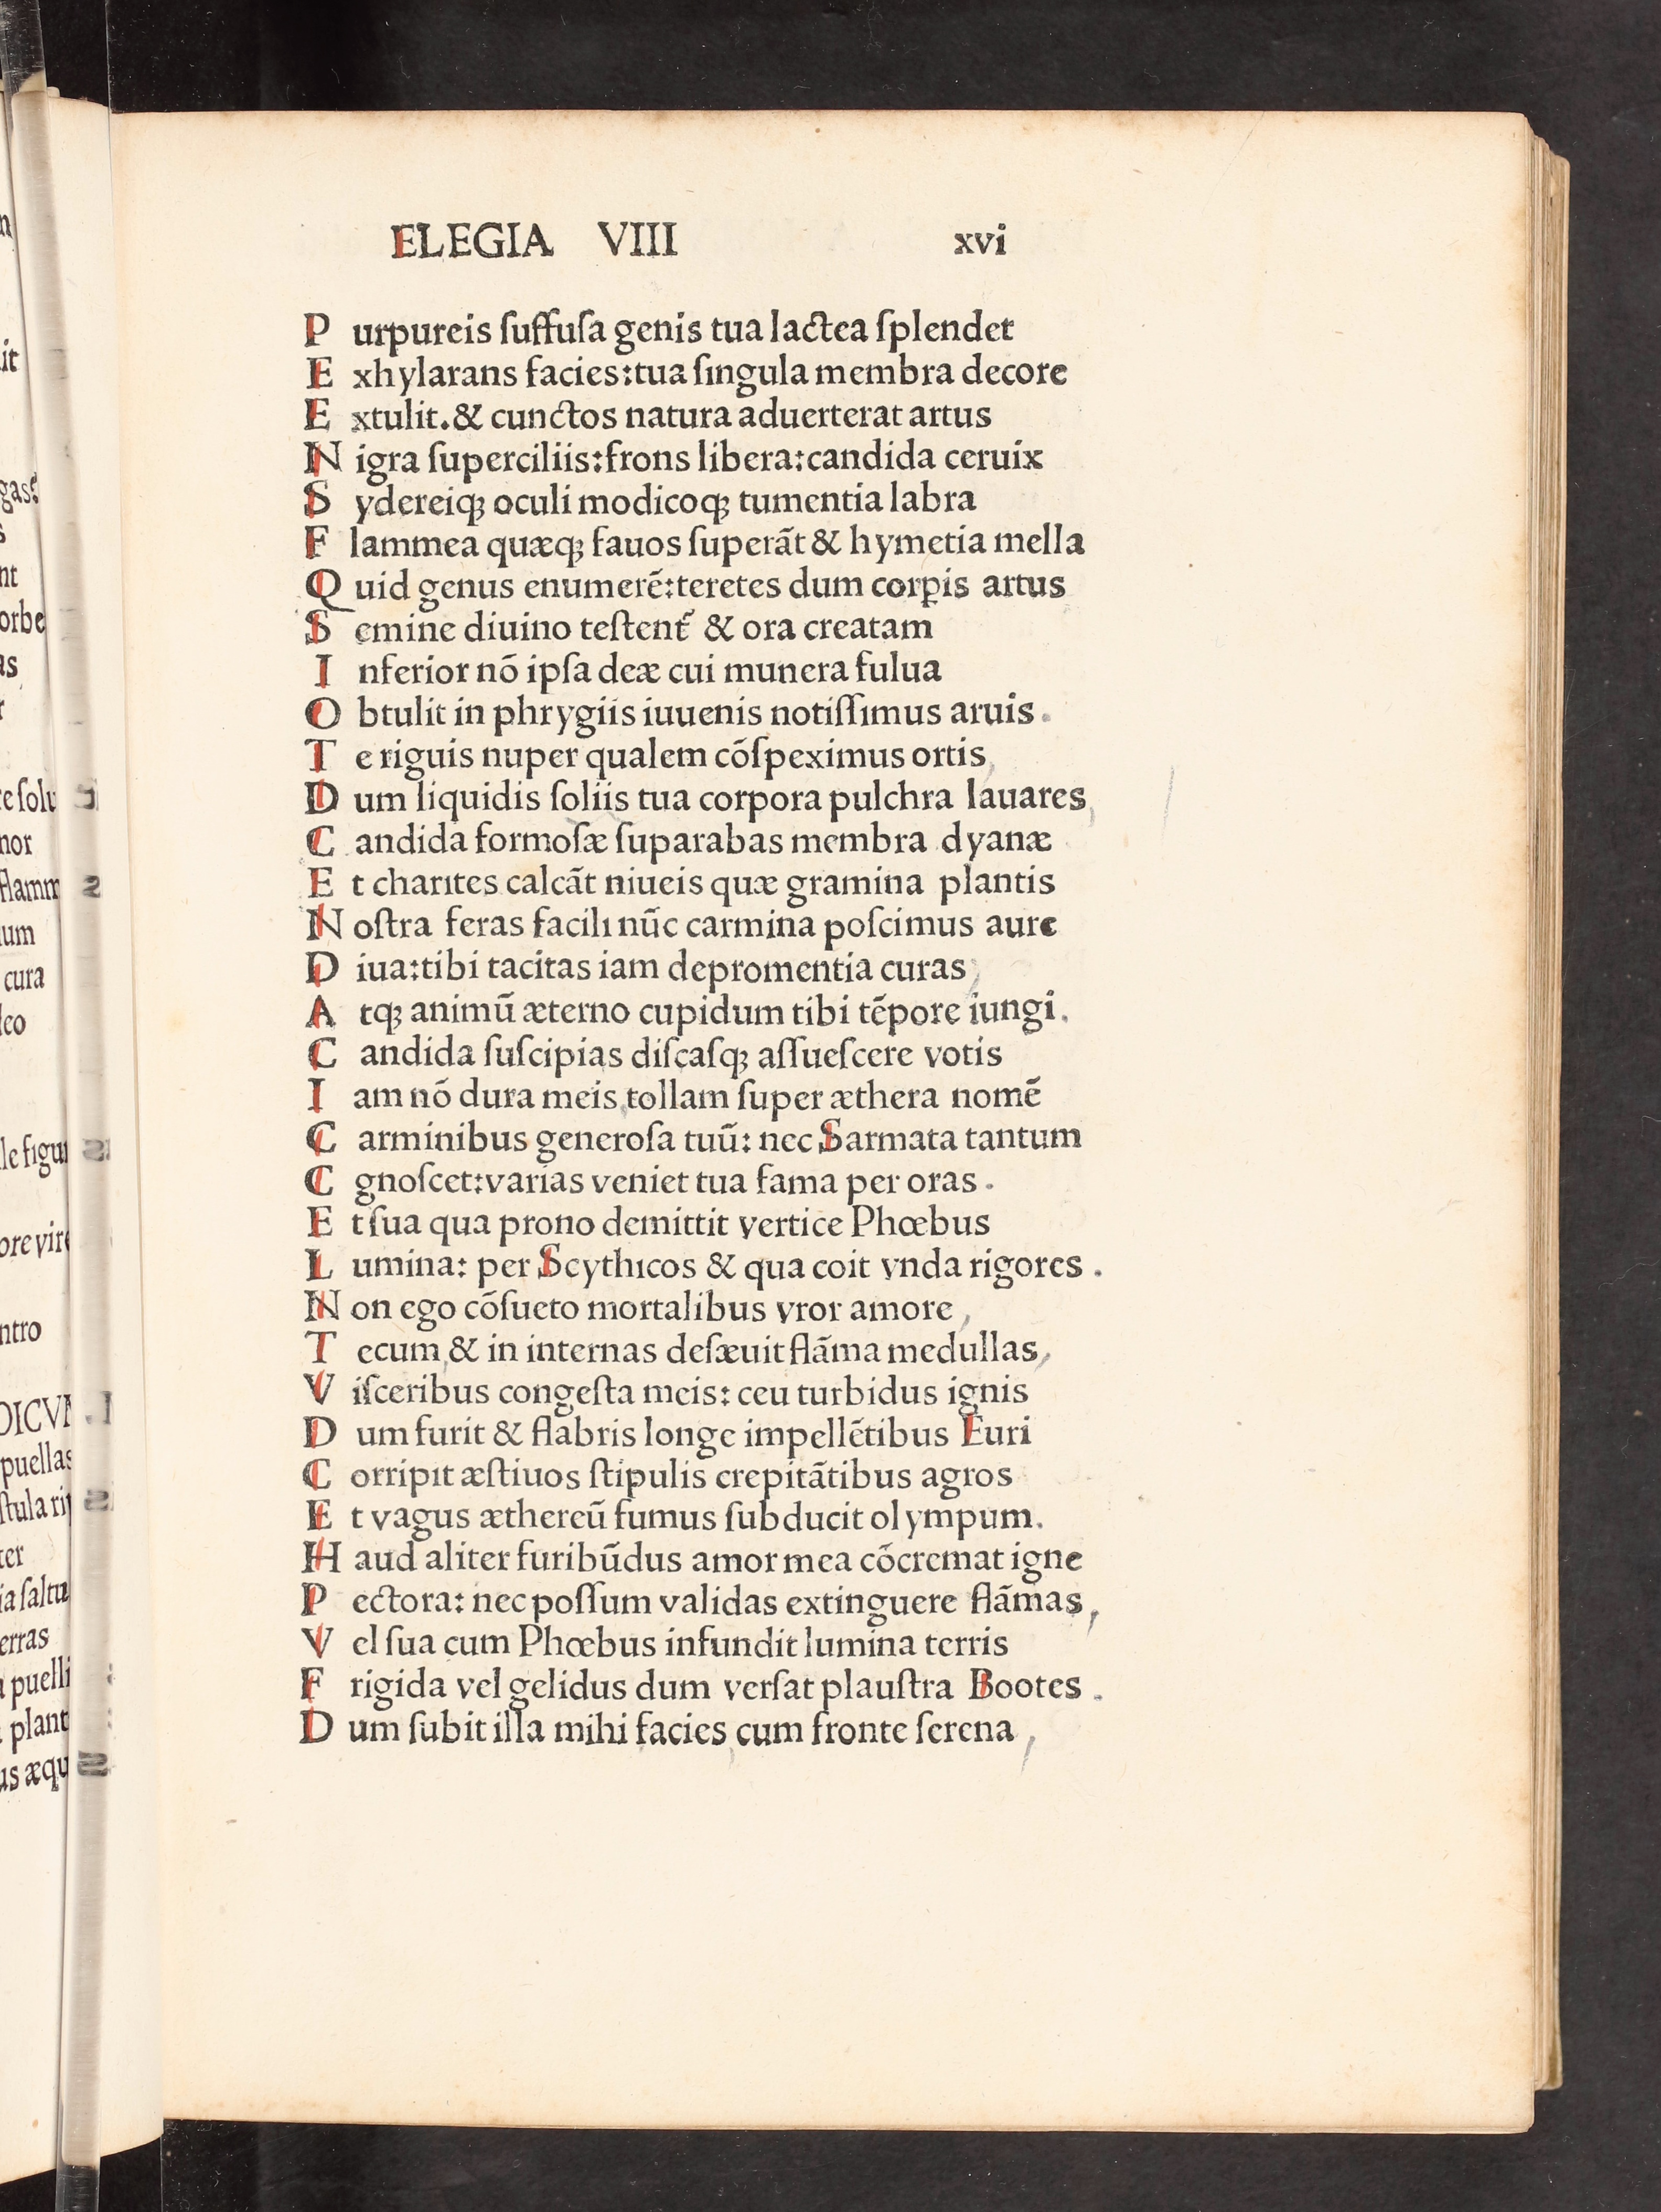 ELEGIA VIII xvi
Purpureis ſuffuſa genis tua lactea ſplendet
Exhylarans facies:tua ſingula membra decore
Extulit.& cunctos natura aduerterat artus
Nigra ſuperciliis:frons libera:candida ceruix
Sydereiqꝫ oculi modicoqꝫ tumentia labra
Flammea quæqꝫ fauos ſuperãt & hymetia mella
Quid genus enumerẽ:teretes dum corꝑis artus
Semine diuino teſtent᷑ & ora creatam
Inferior nõ ipſa deæ cui munera fulua
Obtulit in phrygiis iuuenis notiſſimus aruis.
Te riguis nuper qualem cõſpeximus ortis,
Dum liquidis ſoliis tua corpora pulchra lauares,
Candida formoſæ ſuparabas membra dyanæ
Et charites calcãt niueis quæ gramina plantis
Noſtra feras facili nũc carmina poſcimus aure
Diua:tibi tacitas iam depromentia curas,
Atqꝫ animũ æterno cupidum tibi tẽpore iungi.
Candida ſuſcipias diſcaſqꝫ aſſueſcere votis
Iam nõ dura meis,tollam ſuper æthera nomẽ
Carminibus generoſa tuũ: nec Sarmata tantum
Cgnoſcet:varias veniet tua fama per oras.
Et ſua qua prono demittit vertice Phœbus
Lumina: per Scythicos & qua coit vnda rigores.
Non ego cõſueto mortalibus vror amore,
Tecum,& in internas deſæuit flãma medullas,
Viſceribus congeſta meis: ceu turbidus ignis
Dum furit & flabris longe impellẽtibus Euri
Corripit æſtiuos ſtipulis crepitãtibus agros
Et vagus æthereũ fumus ſubducit olympum.
Haud aliter furibũdus amor mea cõcremat igne
Pectora: nec poſſum validas extinguere flãmas,
Vel ſua cum Phœbus infundit lumina terris
Frigida vel gelidus dum verſat plauſtra Bootes.
Dum ſubit illa mihi facies,cum fronte ſerena,